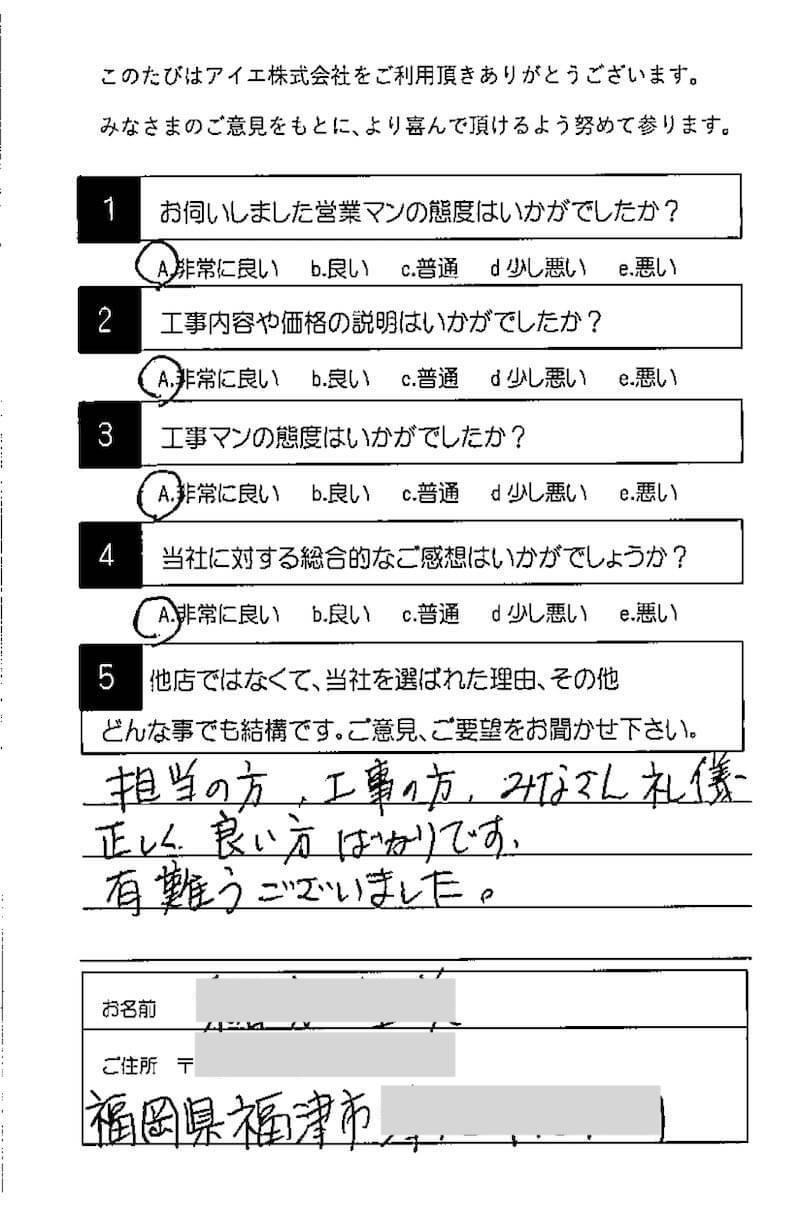 このたびはアイエ株式会社をご利用頂きありがとうございます。
みなさまのご意見をもとに、より喜んで頂けるよう努めて参ります。
1 お伺いしました営業マンの態度はいかがでしたか？
A.非常に良い b.良い c.普通 d 少し悪い e.悪い
2 工事内容や価格の説明はいかがでしたか？
A.非常に良い b.良い c.普通 d 少し悪い e.悪い
3 工事マンの態度はいかがでしたか？
A.非常に良い b.良い c.普通 d 少し悪い e.悪い
4 当社に対する総合的なご感想はいかがでしょうか？
A.非常に良い b.良い c.普通 d 少し悪い e.悪い
5 他店ではなくて、当社を選ばれた理由、その他
どんな事でも結構です。ご意見、ご要望をお聞かせ下さい。
担当の方、工事の方、みなさん礼儀
正しく良い方ばかりです、
有難うございました。
お名前
ご住所 〒
福岡県福津市